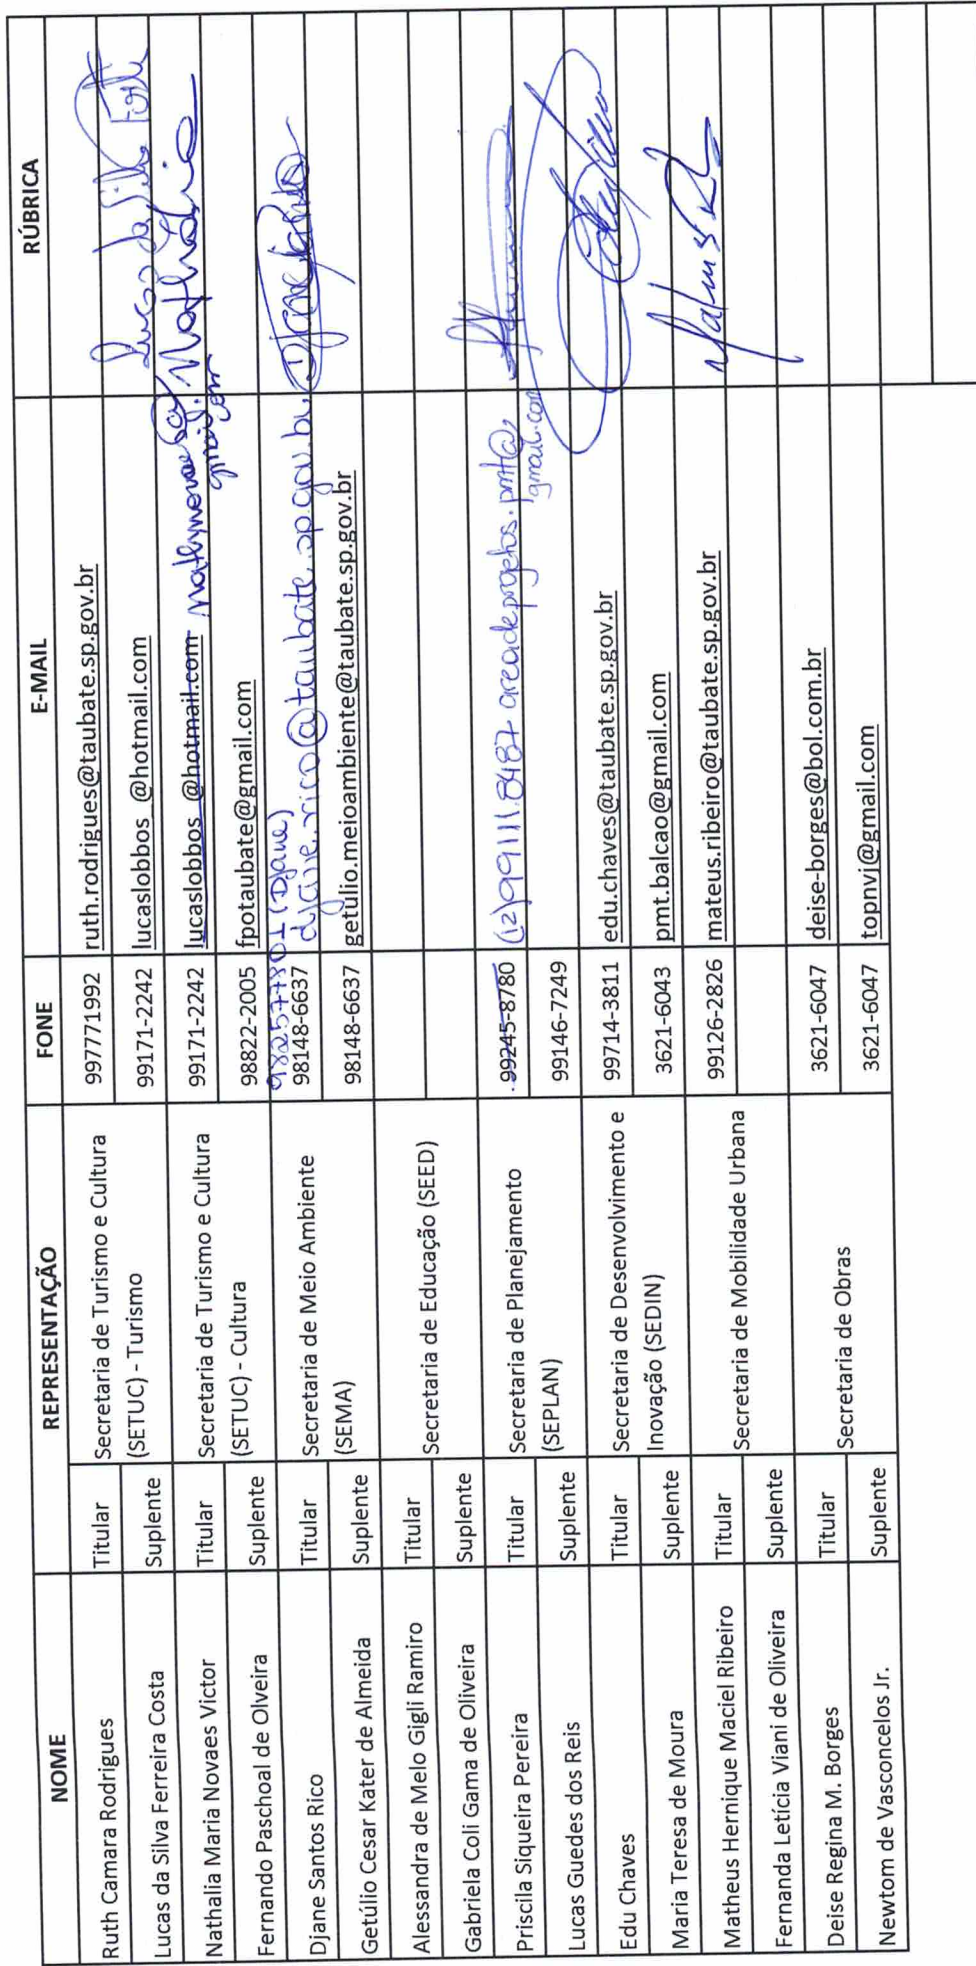 NOME REPRESENTAÇÃO FONE E-MAIL RÚBRICA
Ruth Camara Rodrigues Titular Secretaria de Turismo e Cultura 997771992 ruth.rodrigues@taubate.sp.gov.br
Lucas da Silva Ferreira Costa Suplente (SETUC) - Turismo 99171-2242 lucaslobbos_@hotmail.com Lucas da Silva
Nathalia Maria Novaes Victor Titular Secretaria de Turismo e Cultura 99171-2242 lucaslobbos_@hotmail.com Nathalia
gmail.com
Fernando Paschoal de Olveira Suplente (SETUC) - Cultura 98822-2005 fpotaubate@gmail.com
982577801 (Djane)
Djane Santos Rico Titular Secretaria de Meio Ambiente 98148-6637 djane.rico@taubate.sp.gov.br
Getúlio Cesar Kater de Almeida Suplente (SEMA) 98148-6637 getulio.meioambiente@taubate.sp.gov.br
Alessandra de Melo Gigli Ramiro Titular Secretaria de Educação (SEED)
Gabriela Coli Gama de Oliveira Suplente
Priscila Siqueira Pereira Titular Secretaria de Planejamento 99245-8780 (12)99111.8487 areadeprojetos.pmt@
gmail.com
Lucas Guedes dos Reis Suplente (SEPLAN) 99146-7249
Edu Chaves Titular Secretaria de Desenvolvimento e 99714-3811 edu.chaves@taubate.sp.gov.br
Maria Teresa de Moura Suplente Inovação (SEDIN) 3621-6043 pmt.balcao@gmail.com
Matheus Hernique Maciel Ribeiro Titular Secretaria de Mobilidade Urbana 99126-2826 mateus.ribeiro@taubate.sp.gov.br
Fernanda Letícia Viani de Oliveira Suplente
Deise Regina M. Borges Titular Secretaria de Obras 3621-6047 deise-borges@bol.com.br
Newtom de Vasconcelos Jr. Suplente 3621-6047 topnvj@gmail.com